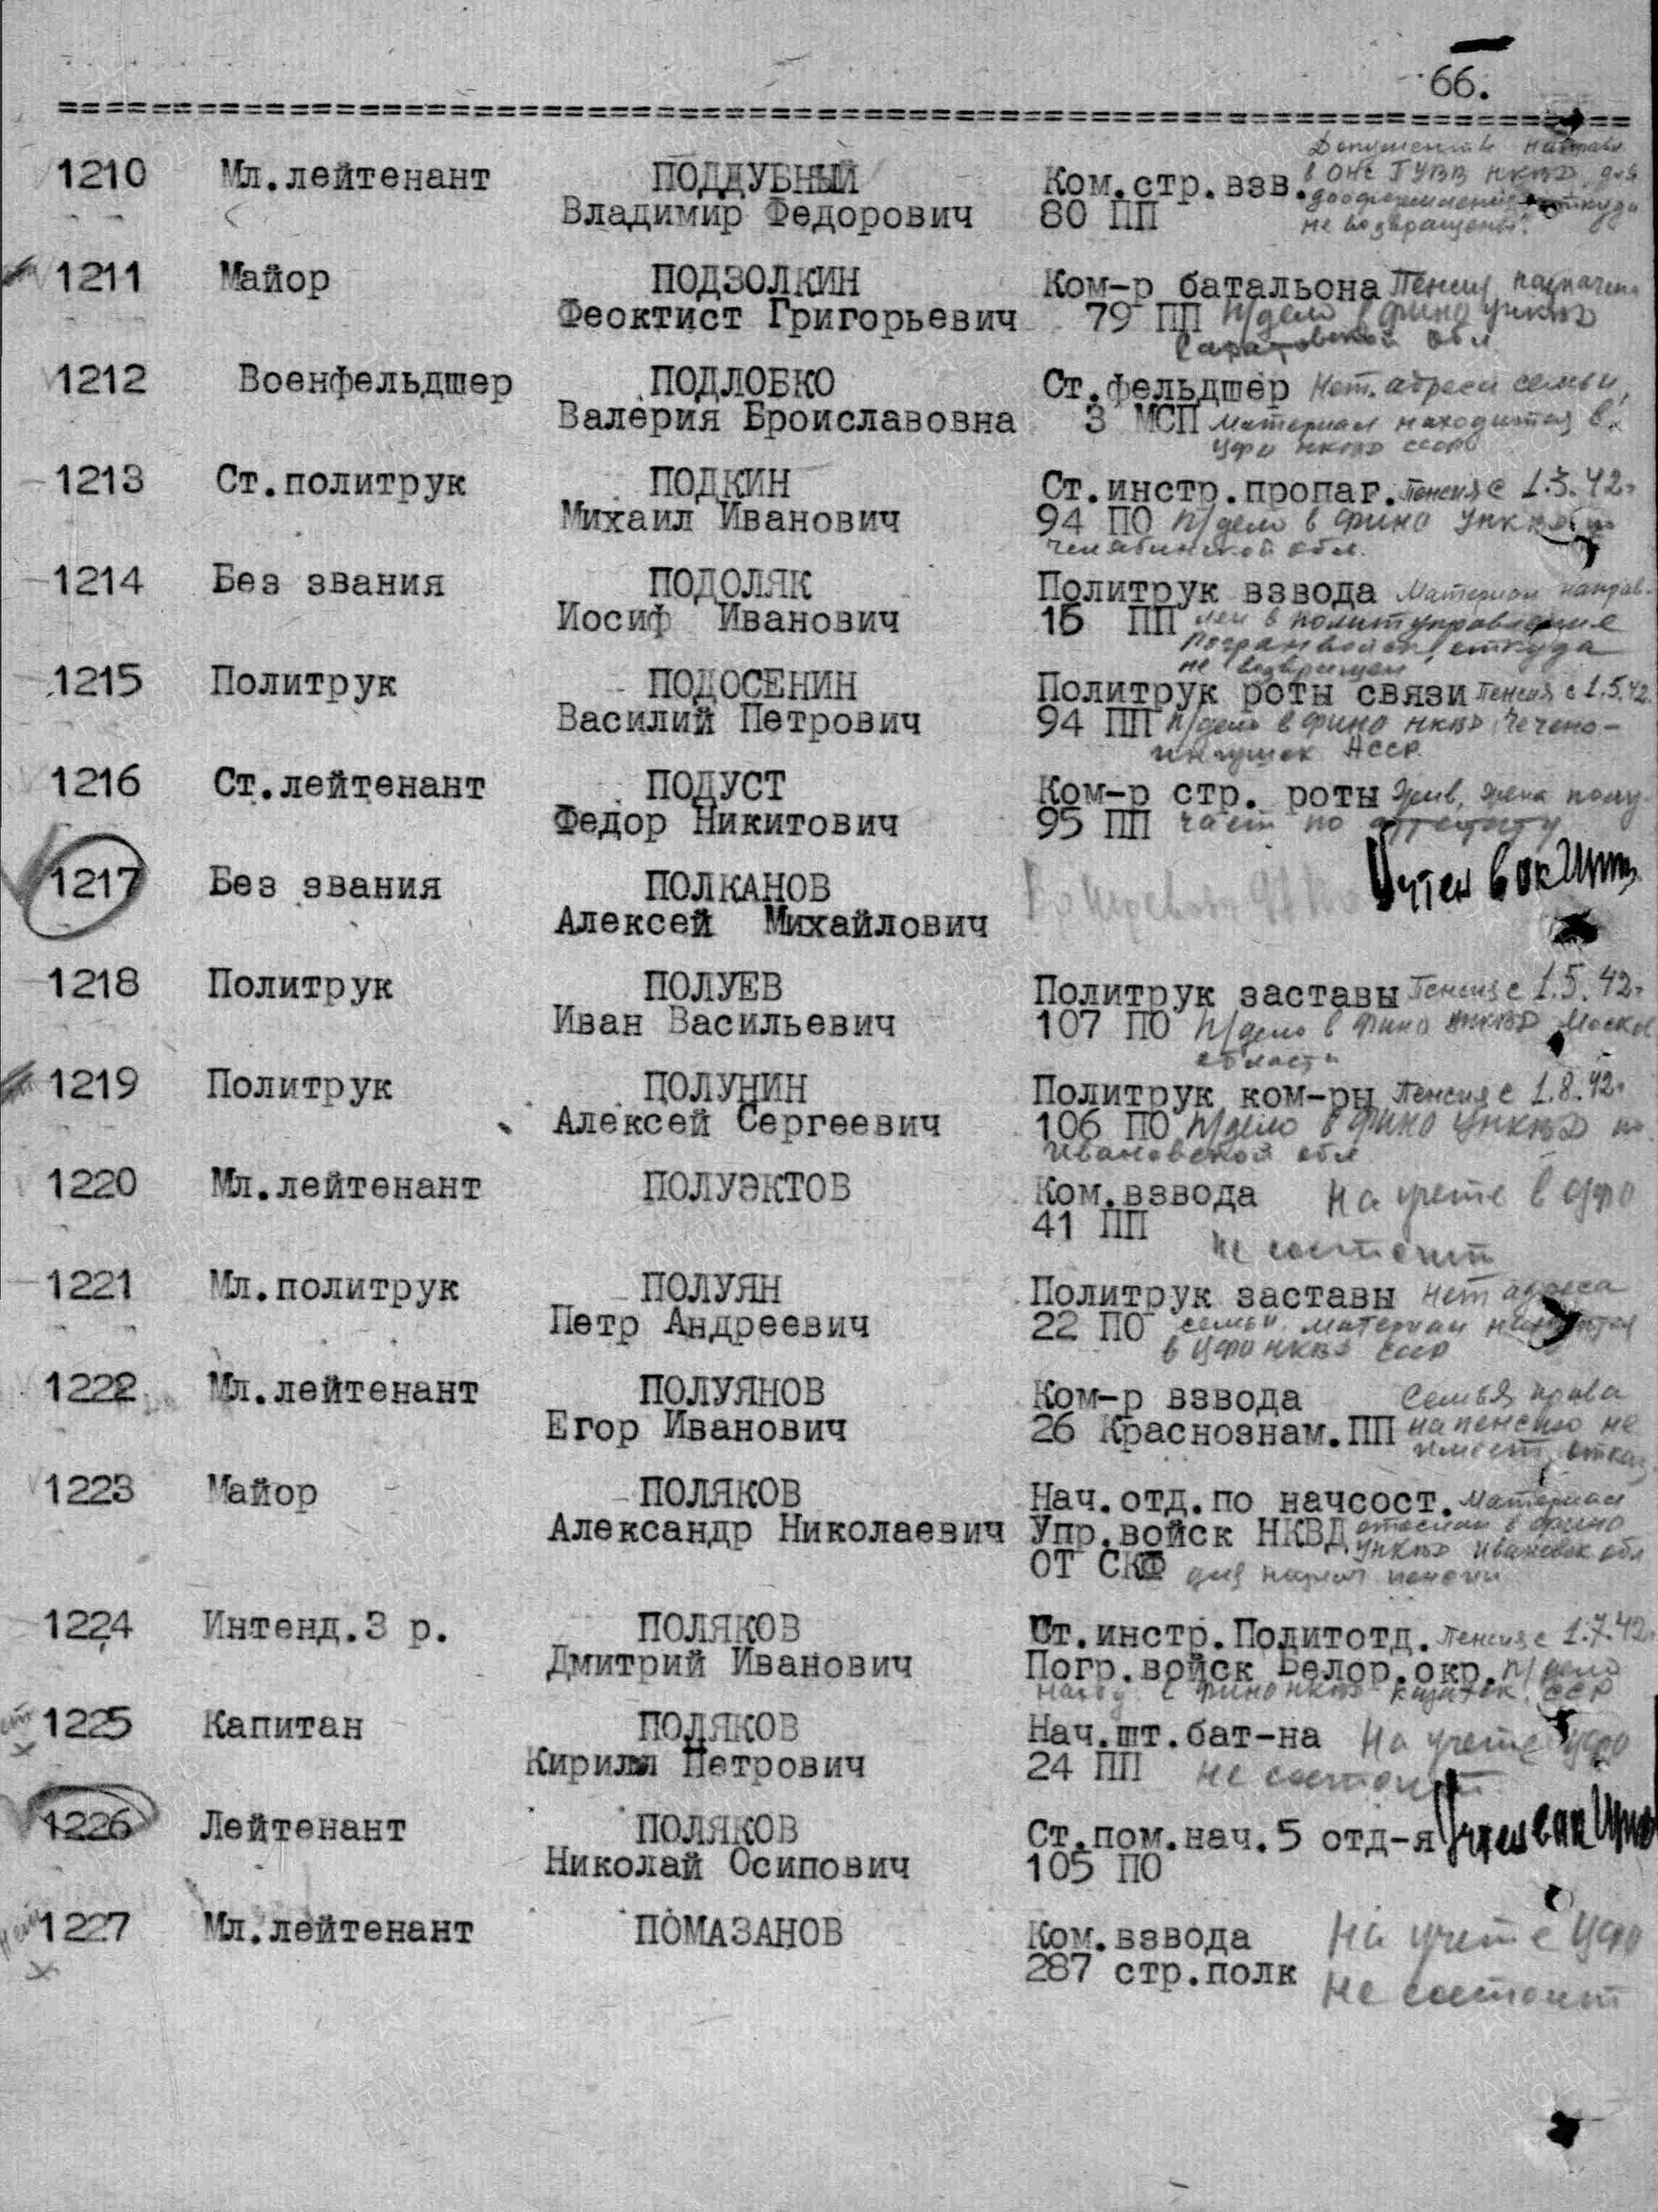 66.
1210 Мл.лейтенант ПОДДУБНЫЙ Ком.стр.взв. Документы направл
Владимир Федорович 80 ПП в ГУВВ НКВД для
дооформления откуда
не возвращены.
1211 Майор ПОДЗОЛКИН Ком-р батальона Пенсия назначена
Феоктист Григорьевич 79 ПП п/дело в фино УНКВД
Саратовской обл
1212 Военфельдшер ПОДЛОБКО Ст.фельдшер Нет адреса семьи,
Валерия Броиславовна 3 МСП материал находится в
ЦФО НКВД СССР
1213 Ст.политрук ПОДКИН Ст.инстр.пропаг. Пенсия с 1.5.42г
Михаил Иванович 94 ПО п/дело в фино УНКВД по
Челябинской обл.
1214 Без звания ПОДОЛЯК Политрук взвода Материал направ-
Иосиф Иванович 15 ПП лен в политуправление
погранвойск, откуда
не возвращен
1215 Политрук ПОДОСЕНИН Политрук роты связи Пенсия с 1.5.42.
Василий Петрович 94 ПП п/дело в фино НКВД Чечено-
ингушск АССР.
1216 Ст.лейтенант ПОДУСТ Ком-р стр. роты Жив, жена полу-
Федор Никитович 95 ПП чает по аттестату
1217 Без звания ПОЛКАНОВ Учтен в ок
Алексей Михайлович
1218 Политрук ПОЛУЕВ Политрук заставы Пенсия с 1.5.42г
Иван Васильевич 107 ПО п/дело в фино УНКВД Москов
области
1219 Политрук ПОЛУНИН Политрук ком-ры Пенсия с 1.8.42г
Алексей Сергеевич 106 ПО п/дело в фино УНКВД по
Ивановской обл
1220 Мл.лейтенант ПОЛУЭКТОВ Ком.взвода На учете в ЦФО
41 ПП не состоит
1221 Мл.политрук ПОЛУЯН Политрук заставы Нет адреса
Петр Андреевич 22 ПО семьи. материал находится
в ЦФО НКВД СССР
1222 Мл.лейтенант ПОЛУЯНОВ Ком-р взвода Семья права
Егор Иванович 26 Краснознам.ПП на пенсию не
имеет, отказ
1223 Майор ПОЛЯКОВ Нач.отд.по начсост. Материал
Александр Николаевич Упр.войск НКВД отослан в фино
УНКВД Ивановск обл
ОТ СКФ для назнач пенсии
1224 Интенд.3 р. ПОЛЯКОВ Ст.инстр.Политотд. Пенсия с 1.7.42г
Дмитрий Иванович Погр.войск Белор.окр. п/дело
наход в фино НКВД Казахск. ССР
1225 Капитан ПОЛЯКОВ Нач.шт.бат-на На учете ЦФО
Кирилл Петрович 24 ПП не состоит
1226 Лейтенант ПОЛЯКОВ Ст.пом.нач.5 отд-я Учтен в ок
Николай Осипович 105 ПО
1227 Мл.лейтенант ПОМАЗАНОВ Ком.взвода На учете ЦФО
287 стр.полк не состоит